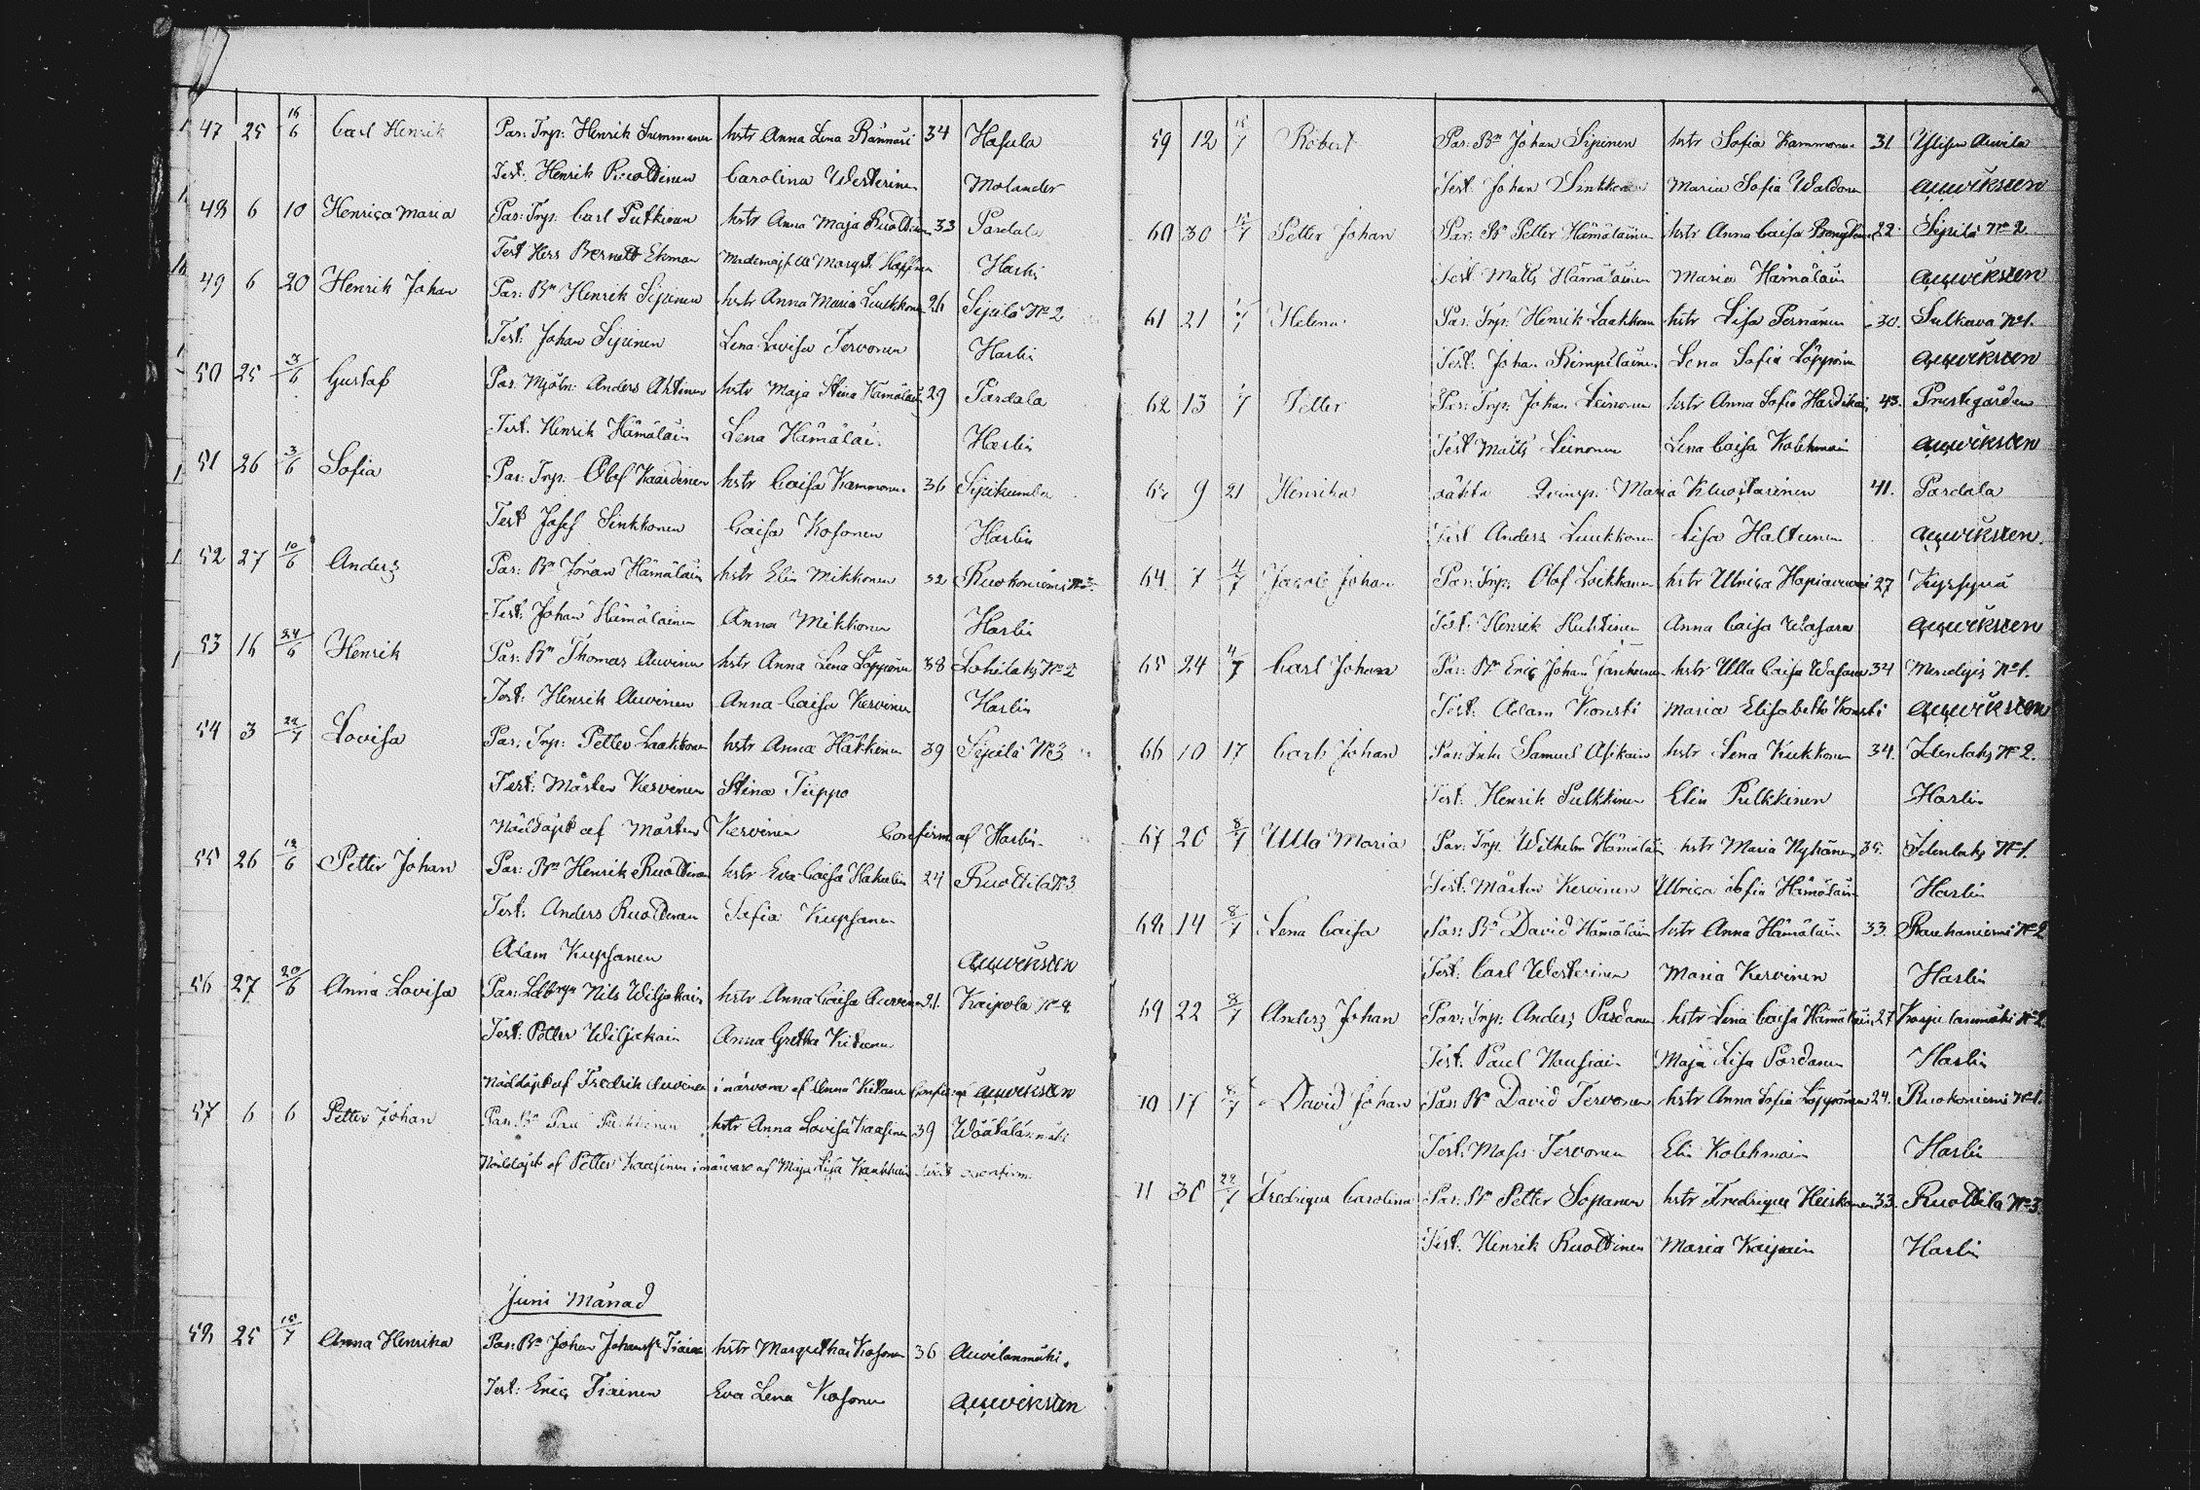 47 25 16/6 Carl Henrik Par: Trp: Henrik Summanen hstr Anna Lena Rännäri 34 Hasula
Test: Henrik Ruottinen Carolina Westerinen Molander
48 6 10 Henrica Maria Par: Trp: Carl Putkinen hstr Anna Maja Ruottinen 33 Pardala
Test Herr Bernett Ekman Margt. Harlin
49 6 20 Henrik Johan Par: Bn Henrik Sipinen hstr Anna Maria Luukkonen 26 Sipilä No 2
Test Johan Sipinen Lena Lovisa Tervonen Harlin
50 25 13/6 Gustaf Par. Mjöln: Anders Ahtinen hstr Maja Stina Hämäläin 29 Pardala
Test. Henrik Hämäläin Lena Hämäläi. Harlin
51 26 3/6 Sofia Par: Trp. Olof Kaardinen hstr Caisa Kammonen 36 Sipikumbu
Test Josef Sinkkonen Caisa Kosonen Harlin
52 27 10/6 Anders Par: Bn Johan Hämäläin hstr Elin Mikkonen 32 Ruokoniemi
Test: Johan Hämäläinen Anna Mikkonen Harlin
53 16 24/6 Henrik Par: Bn Thomas Auvinen hstr Anna Lena Löppönen 38 Lohilaks No 2
Test: Henrik Auvinen Anna Caisa Kervinen Harlin
54 3 22/7 Lovisa Par: Trp: Petter Laakkonen hstr Anna Häkkinen 39 Sipilä No 3
Test: Mårten Kervinen Stina Tiippo
Nöddöpt af Mårten Kervinen Confirm af Harlin
55 26 12/6 Petter Johan Par: Bn Henrik Ruottinen hstr Eva Caisa Hakulin 24 Ruottila No 3
Test: Anders Ruottinen Sofia Kupsanen
Adam Kupsanen Auvikslen
56 27 20/6 Anna Lovisa Par: Nils Wiljakain hstr Anna Caisa Auvinen 21. Kaipola No 4
Test: Petter Wiljakain Anna Gretha Kitunen
Nöddöpt af Fredrik Auvinen i närvaro af Anna Kitunen
57 6 6 Petter Johan Par: Bn hstr Anna Lovisa Kaasinen 39 Wäätälänmäki
Nöddöpt af Petter Kaasinen i närvaro af Maja Lisa confirm
Juni Månad
58 25 15/7 Anna Henrika Par: Bn Johan Johansson Tiainen hstr Margretha Kosonen 36 Auvilanmäki.
Test: Eric Tiainen Eva Lena Kosonen
59 12 15/7 Robert Par: Bn Johan Sipinen hstr Sofia Kammonen 31 Auvila
Test Johan Sinkkonen Maria Sofia Waldonen
60 30 15/7 Petter Johan Par: Bn Petter Hämäläinen hstr Anna Caisa 22 Sipilä No 2
Test Matts Hämäläinen Maria Hämäläin
61 21 Helena Par: Trp: Henrik Laakkonen hstr Lisa Pernänen 30. Sulkava No 1.
Test. Johan Rimpiläinen Lena Sofia Löppönen
62 13 Petter Par: Trp: Johan Leinonen hstr Anna Sofia Hardikai 43. Prestgården
Test Matts Leinonen Lena Caisa Kolehmain
63 9 21 Henrika oäkta Maria Kluostarinen 41. Pardala
Test Anders Luukkonen Lisa Haltunen
64 7 4/7 Jacob Johan Par: Trp: Olof Loikkanen hstr Ulrica Hapiavuori 27 Kyrsyuä
Test: Henrik Huhtinen Anna Caisa Wasara
65 24 4/7 Carl Johan Par: Bn Eric Johan hstr Ulla Caisa Wasara 34 No 1.
Test: Adam Konsti Maria Elisabeth Konsti
66 10 17 Carl Johan Par: Inh: Samuel Asikain hstr Lena Kukkonen 34. Idenlaks No 2.
Test. Henrik Pulkkinen Elin Pulkkinen Harlin
67 20 8/7 Ulla Maria Par: Trp. Wilhelm Hämäläin hstr Maria Nykänen 35. Idenlaks No 1.
Test: Mårten Kervinen Ulrica Sofia Hämäläin Harlin
68 14 8/7 Lena Caisa Par: Bn David Hämäläin hstr Anna Hämäläin 33. Rauhaniemi No 2
Test: Carl Westerinen Maria Kervinen Harlin
69 22 8/7 Anders Johan Par: Trp: Anders Pardanen hstr Lena Caisa Hämäläin 27 No 2
Test. Paul Nousiain Maja Lisa Pardanen Harlin
70 17 8/7 David Johan Par: Bn David Tervonen hstr Anna Sofia Löppönen 24. Ruokoniemi No 1.
Test: Mats Tervonen Elin Kolehmain Harlin
71 30 22/7 Fredrique Carolina Par: Bn Petter Sopanen hstr Fredrique Heiskanen 33. Ruottila No 3.
Test. Henrik Ruottinen Maria Kaipain Harlin